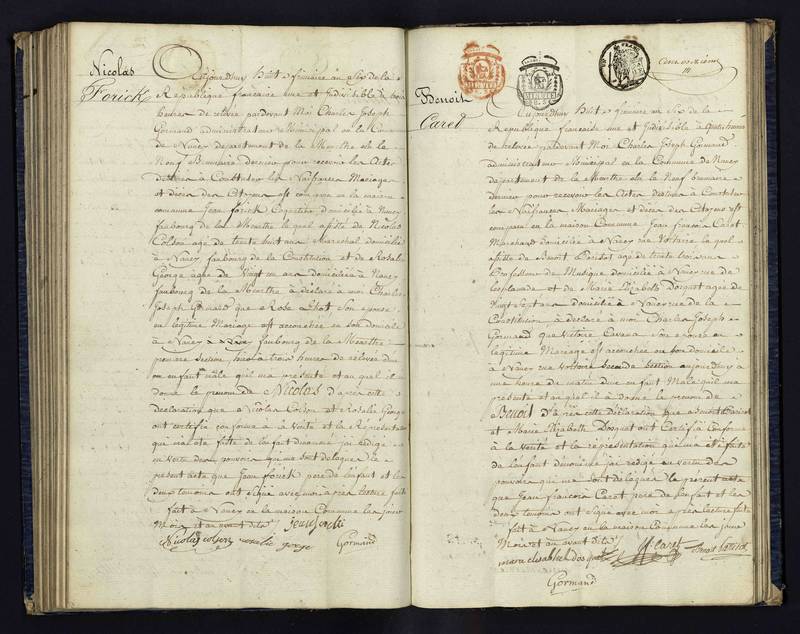 Nicolas
Forick
Aujourd'huy huit frimaire an Six de la
Republique francaise une et Indivisible à trois
heures de relevée pardevant Moi Charles Joseph
Gormand administrateur Municipal en la
de Nancy departement de la Meurthe elu le
Neuf Brumaire dernier pour recevoir les Actes
destinés à Constater les Naissances Mariages
et décès des Citoyens est comparu en la maison
commune Jean forick domicilié à Nancy
faubourg de la Meurthe le quel assisté de Nicolas
Colson agé de trente huit ans Marechal domicilié
à Nancy faubourg de la Constitution et de Rosalie
George agée de Vingt un ans domiciliée à Nancy
faubourg de la Meurthe à déclaré à moi Charles
Joseph Gormand que Rose Son epouse
en legitime Mariage est accouchée en son domicile
à Nancy faubourg de la Meurthe
premiere section à trois heures de relevée
un enfant mâle qu'il m'a presenté et au quel il a
donné le prenom de Nicolas d'après cette
declaration que Nicolas Colson et Rosalie George
ont certifié conforme à la verité et la Representation
qui m'a été faite de l'enfant dénommé j'ai redigé
en vertu des pouvoirs qui me sont delegués le
present acte que Jean forick pere de l'enfant et les
deux temoins ont signé avec moi après lecture faite
fait à Nancy en la maison Commune les jour
Mois et an avant dits
Nicolas colson rosalie george Gormand
Benoit
Caret
MINUTE
Aujourd'huy huit frimaire an Six de la
Republique francaise une et Indivisible à quatre heures
de relevée pardevant Moi Charles Joseph Gormand
administrateur Municipal en la Commune de Nancy
departement de la Meurthe elu le Neuf brumaire
dernier pour recevoir les Actes destinés à Constater
les Naissances Mariages et décès des Citoyens est
comparu en la maison Commune Jean francois Caret
Marchand domicilié à Nancy rue Voltaire le quel
assisté de Benoit agé de trente trois ans
Professeur de Musique domicilié à Nancy rue de
l'esplanade et de Marie Elizabeth Dosquet agée de
vingt sept ans domiciliée à Nancy rue de la
Constitution à déclaré à moi Charles Joseph
Gormand que Victoire Son epouse en
legitime Mariage est accouchée en son domicile
à Nancy rue Voltaire seconde section aujourd'huy à
une heure du matin d'un enfant Male qu'il m'a
presenté et au quel il a donné le prenom de
Benoit D'après cette déclaration que Benoit
et Marie Elizabeth Dosquet ont Certifié Conforme
à la verité et la réprésentation qui m'a été faite
de l'enfant dénommé j'ai redigé en vertu des
pouvoirs qui me sont delegués le present acte
que Jean francois Caret pere de l'enfant et les
deux temoins ont signé avec moi après lecture faite
fait à Nancy en la maison Commune les jour
Mois et an avant dits
marie elisabeth dosquet
Gormand